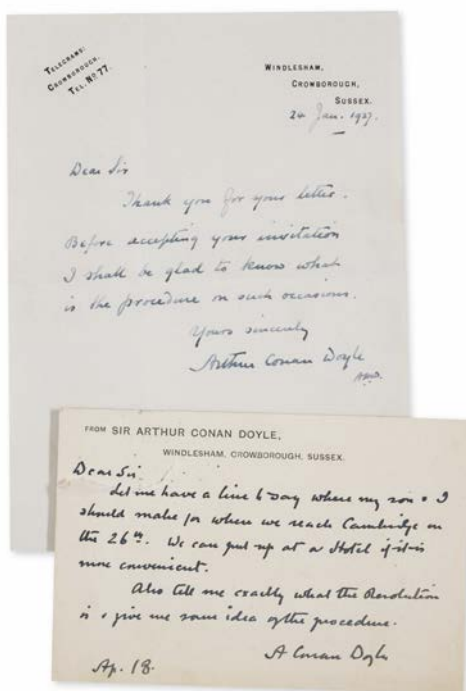 TELEGRAMS:
CROWBOROUGH.
TEL. No 77.
WINDLESHAM,
CROWBOROUGH,
SUSSEX.
24 Jan. 1927.
Dear Sir
Thank you for your letter.
Before accepting your invitation
I shall be glad to know what
is the procedure on such occasions.
Yours sincerely
Arthur Conan Doyle
FROM SIR ARTHUR CONAN DOYLE,
WINDLESHAM, CROWBOROUGH, SUSSEX.
Dear Sir
Let me have a line to say where my son & I
should make for when we reach Cambridge on
the 26th. We can put up at a Hotel if it is
more convenient.
Also tell me exactly what the Resolution
is & give me some idea of the procedure.
A Conan Doyle
Ap. 18.